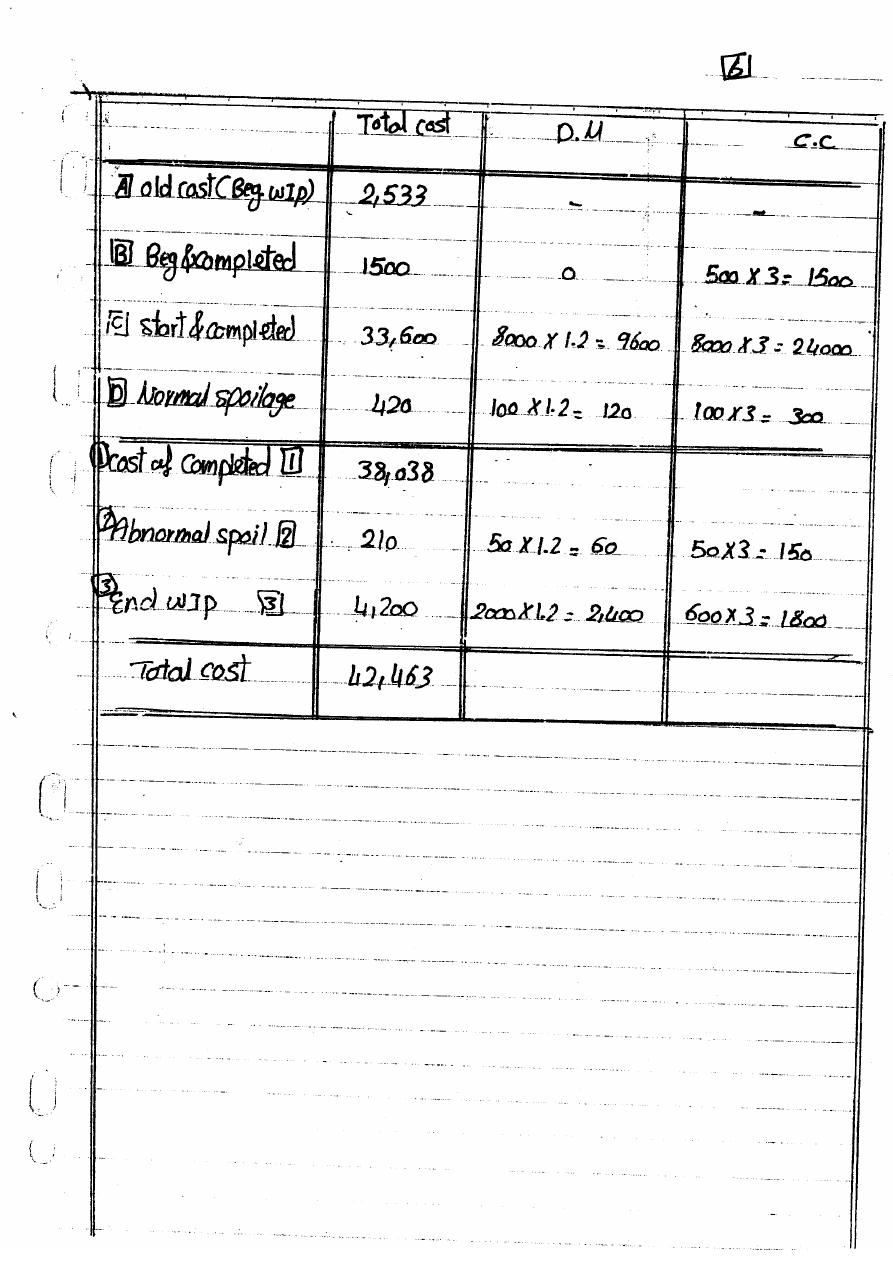 6
Total cost D.M C.C
A old cost (Beg WIP) 2,533 - -
B Beg & completed 1500 0 500 X 3 = 1500
C start & completed 33,600 8000 X 1.2 = 9600 8000 X 3 = 24000
D Normal spoilage 420 100 X 1.2 = 120 100 X 3 = 300
1 cost of completed 1 38,038
2 Abnormal spoil 2 210 50 X 1.2 = 60 50 X 3 = 150
3 End WIP 3 4,200 2000 X 1.2 = 2,400 600 X 3 = 1800
Total cost 42,463